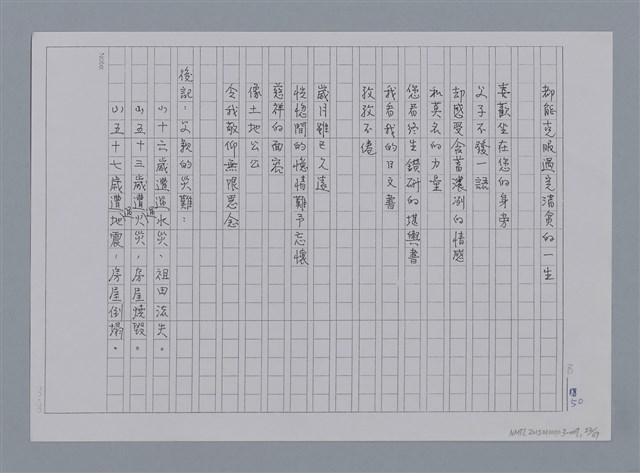 却能克服過完清貧的一生
喜歡坐在您的身旁
父子不發一語
却感受含蓄濃冽的情感
和莫名的力量
您看終生鑽研的堪輿書
我看我的日文書
孜孜不倦
歲月雖已久遠
恍惚間的憶情難予忘懷
慈祥的面容
像土地公公
令我敬仰無限思念
後記：父親的災難：
(1)十六歲遭遇水災、祖田流失。
(2)五十三歲遭遇火災，房屋燒毀。
(3)五十七歲遭遇地震，房屋倒塌。
50